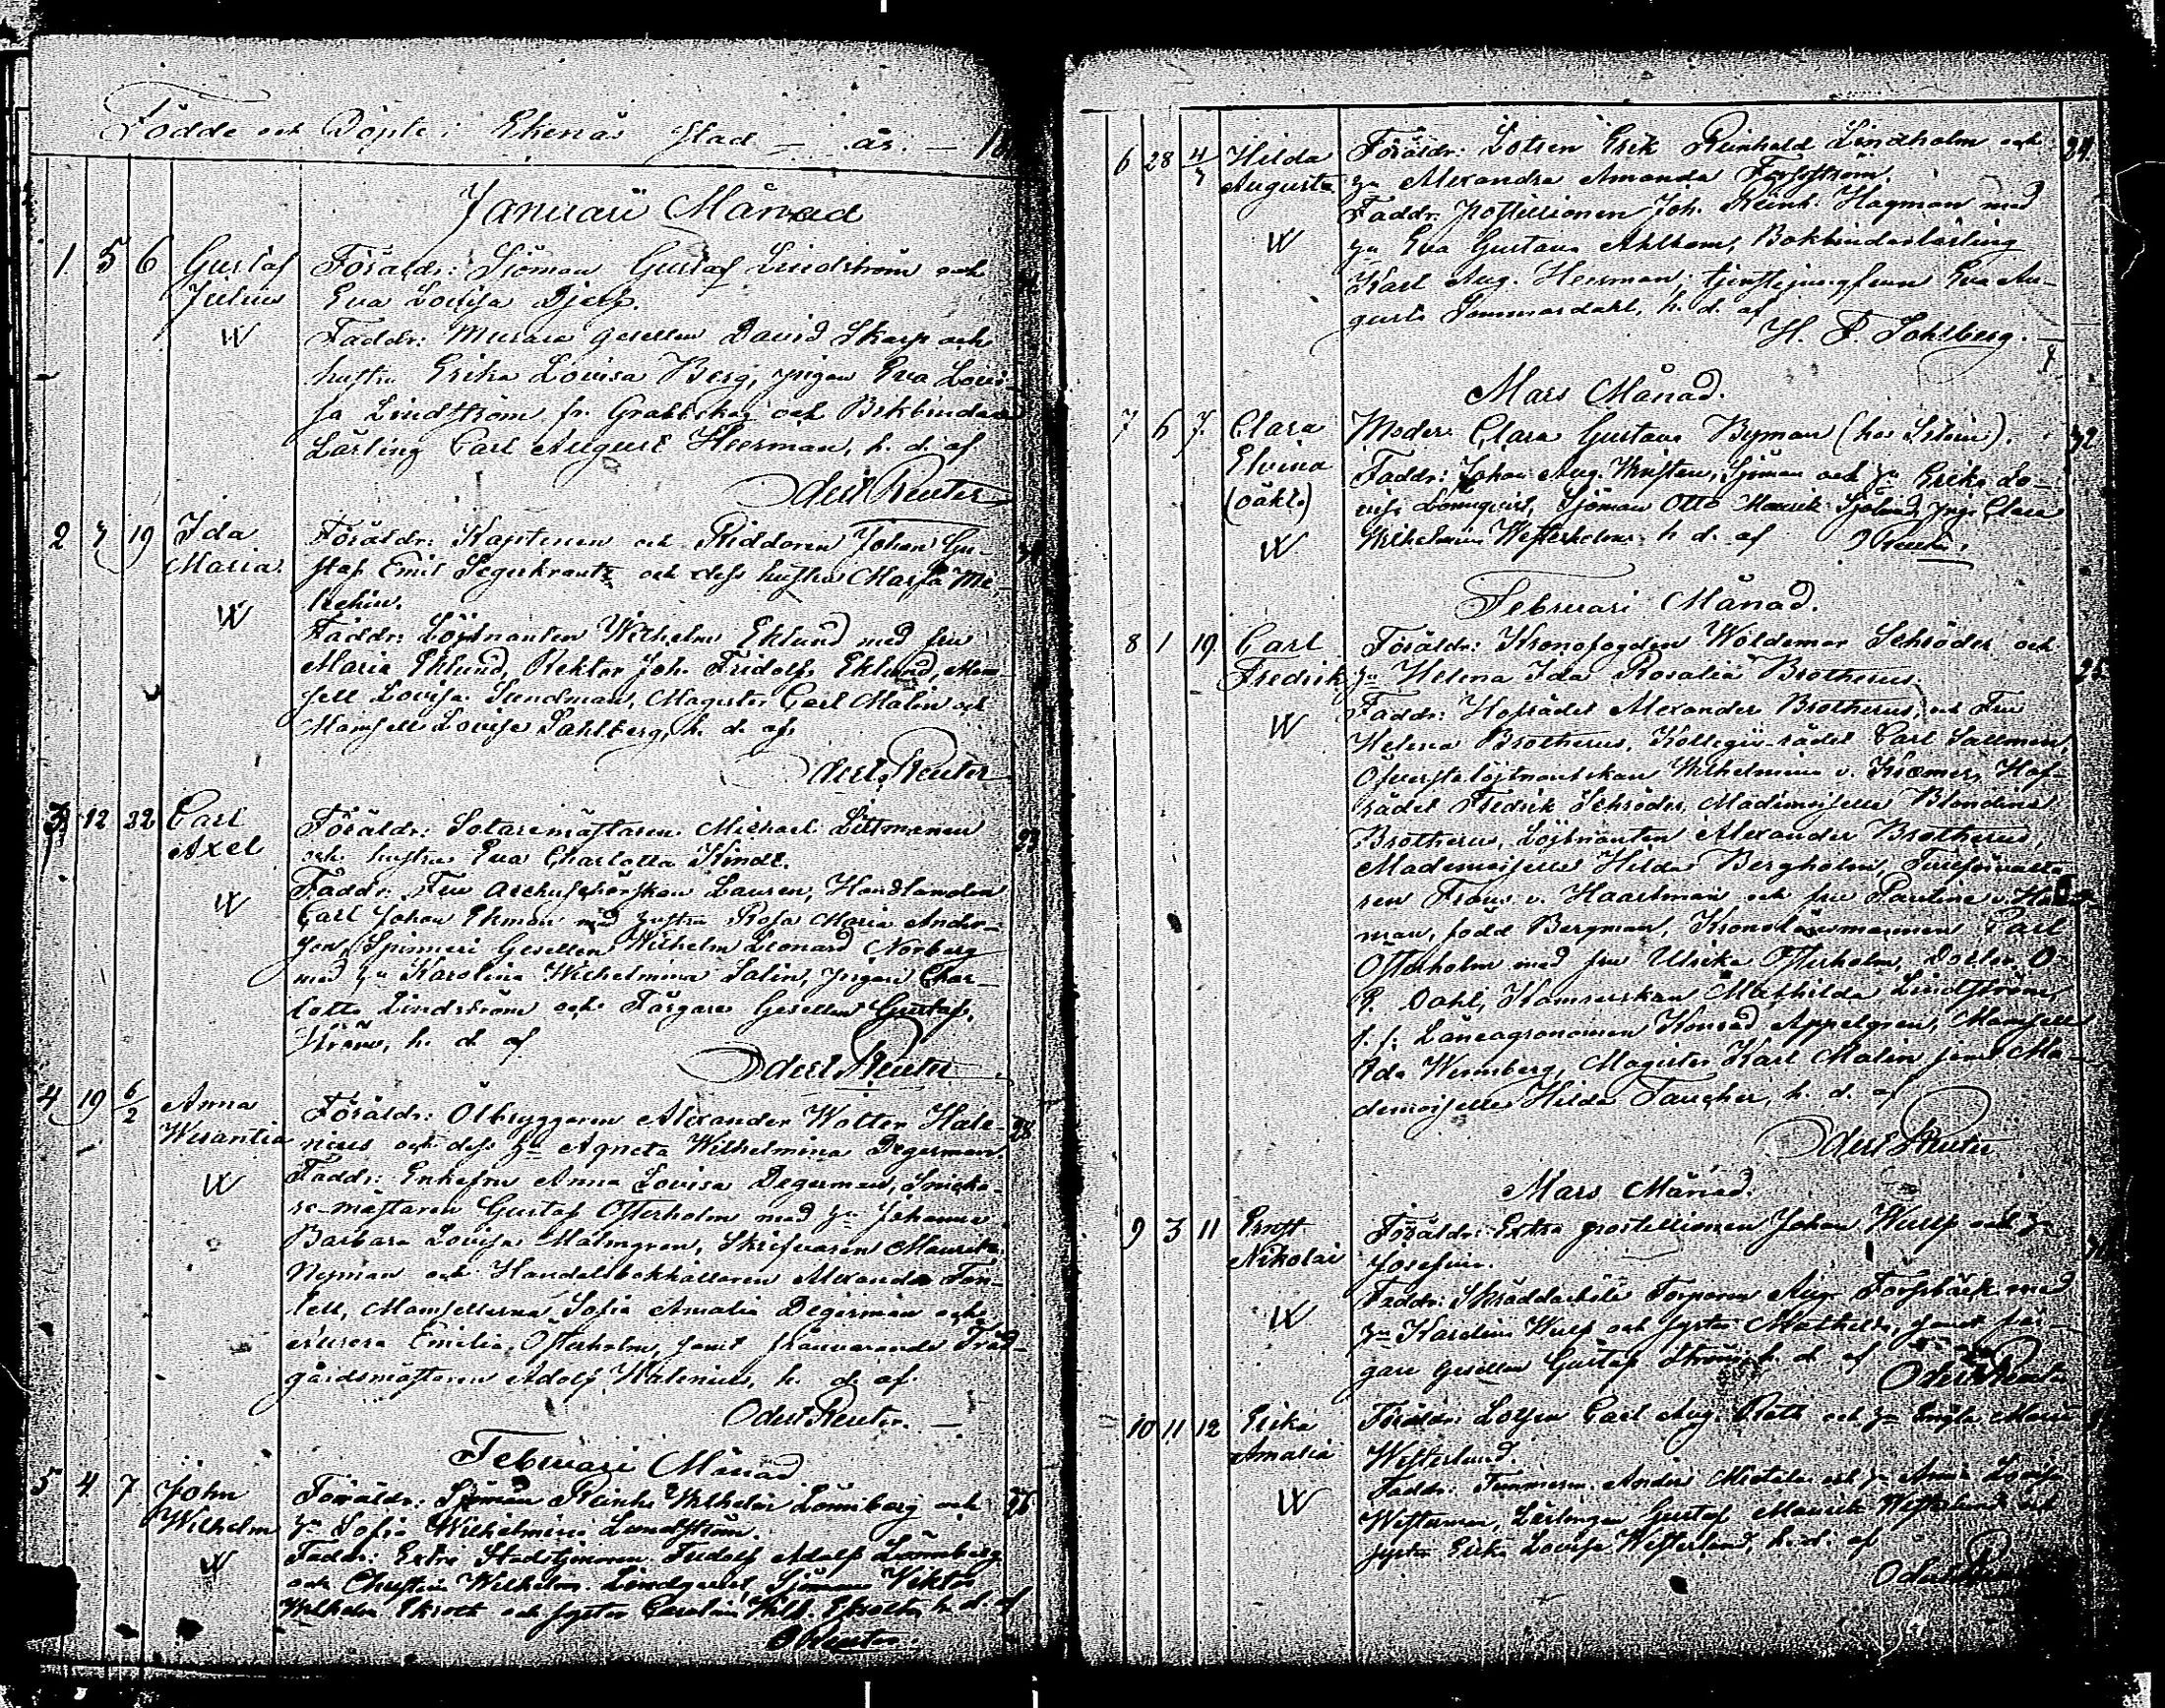 Födde och Döpte i Ekenäs stad – år. – 18
Januari Månad
1 5 6 Gustaf Föräldr: Sjöman Gustaf Lindström och
Julius Eva Lovisa Djerf.
W Faddr: Murare gesellen David Skarp och
hustru Erika Lovisa Berg, pigan Eva Lovi-
sa Lindström fr. och Bokbindare
Lärling Carl August Heerman, h. d. af
Odert Reuter
2 7 19 Ida Föräldr: Kaptenen och Riddaren Johan Gu-
Maria staf Emil Segerkrantz och dess hustru
W
Faddr: Löjtnanten Wilhelm Eklund med fru
Maria Eklund, Rektor Joh. Fridolf Eklund, Mam-
sell Lovisa Sundman, Magister Carl Malin och
Mamsell Lovise Sahlberg, h. d. af
Odert Reuter
3 12 22 Carl Föräldr: Sotaremästaren Michael Littmanen
Axel och hustru Eva Charlotta Kindt.
W Faddr: Fru Lauren, Handlanden
Carl Johan Ekman med hustru Rosa Maria Anders-
son, Spinneri Gesellen Wilhelm Leonard Norberg
med hu Karolina Wilhelmina Salin, pigan Char-
lotta Lindström och Färgare Gesellen Gustaf
Ström, h. d. af
Odert Reuter
4 19 6/2 Anna Föräldr: Ölbryggaren Alexander Wolter Hale-
Wirantia nius och dess hu Agneta Wilhelmina Degerman.
W Faddr: Enkefru Anna Lovisa Degerman, Snicka-
re-mästaren Gustaf Österholm med hu Johanna
Barbara Lovisa Malmgren, Skrifvaren Maurits
Nyman och Handelsbokhållaren Alexander Fon-
tell, Mamsellerna Sofia Amalia Degerman och
Emilia Österholm, samt frånvarande Träd-
gårdsmästaren Adolf Halenius, h. d. af
Odert Reuter.
Februari Månad
5 4 7 John Föräldr: Sjöman Reinh. Wilhelm Lönnberg och
Wilhelm hu Sofia Wilhelmina Lundström.
W Faddr: Extra Stadstjenaren Adolf Lönnberg
och Christina Wilhelm. Lindqvist, Sjöman Viktor
Wilhelm Ekroth och syster Carolina Wilh. Ekroth h. d. af
O Reuter.
6 28 4/3 Hilda Föräldr: Lotsen Erik Reinhold Lindholm och
Augusta hu Alexandra Amanda Forsström.
W Faddr: Postillionen Joh. Reinh. Hagman med
hu Eva Gustava Ahlbom, Bokbindarlärling
Karl Aug. Heerman, tjenstejungfrun Eva Au-
gusta Sommardahl, h. d. af
H. F. Sahlberg.
Mars Månad.
7 6 7 Clara Moder: Clara Gustava Byman (hos ).
Elvina Faddr: Johan Aug. Sjöman och hu Erika Lo-
(oäkt.) visa Lönnqvist, Sjöman Otto Maurits Sjölund, pig. Clara
W Wilhelmina Westerholm h. d. af O Reuter.
Februari Månad.
8 1 19 Carl Föräldr: Kronofogden Woldemar Schröder och
Fredrik hu Helena Ida Rosalia Brotherus.
W Faddr: Hofrådet Alexander Brotherus, och Fru
Helena Brotherus, Kollegii-rådet Carl Sallmen,
Öfverstelöjtnantskan Wilhelmina v. Kræmer, Hof-
rådet Fredrik Schröder, Mademoiselle Blondina
Brotherus, Löjtnanten Alexander Brotherus,
Mademoiselle Hilda Bergholm, Tullförvalta-
ren Frans v. Haartman och fru Pauline v. Haart-
man, född Bergman, Kronolänsmannen Carl
Österholm med fru Ulrika Österholm, Doctor O.
P. Dahl, Kamrerskan Mathilda Lindström,
f. f. Läneagronomen Konrad Appelgren, Mamsell
Ida Wennberg, Magister Karl Malin samt Ma-
demoiselle Hilda Taucher, h. d. af
Odert Reuter
Mars Månad.
9 3 11 Ernst Föräldr: Extra postillionen Johan Wulf och hu
Nikolai Josefina.
W Faddr: Torparen Aug. Forsbäck med
hu Karolina Wulf och syster Mathilda, samt fär-
gare gesellen Gustaf Ström, h. d. af
Odert Reuter
10 11 12 Erika Föräldr: Lotsen Carl Aug. Roth och hu Engla Maria
Amalia Westerlund.
W Faddr: Timmerm. Anders och hu Anna Lovisa
Westerman, Lärlingen Gustaf Maurits Westerlund och
syster Erika Lovisa Westerlund, h. d. af
Odert Reuter